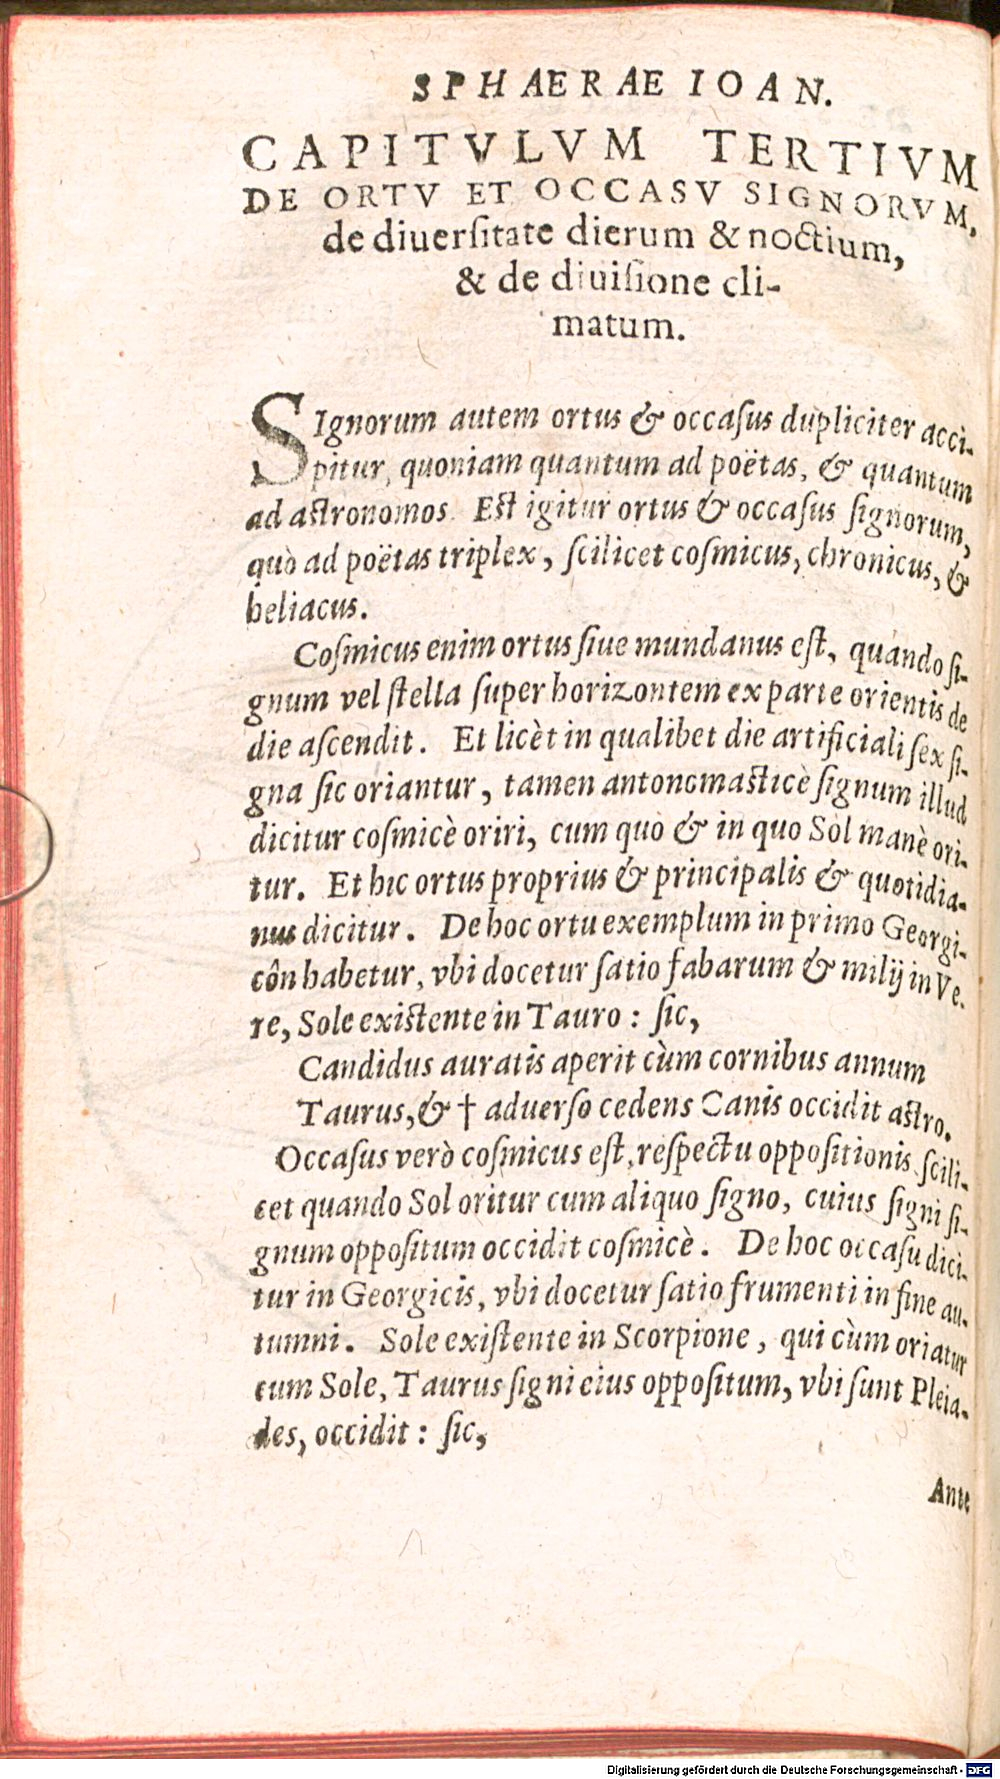 SPHAERAE IOAN.
CAPITVLVM TERTIVM
DE ORTV ET OCCASV SIGNORVM,
de diuerſitate dierum & noctium,
& de diuiſione cli-
matum.
SIgnorum autem ortus & occaſus dupliciter acci-
pitur, quoniam quantum ad poëtas, & quantum
ad astronomos. Est igitur ortus & occaſus ſignorum,
quò ad poëtas triplex, ſcilicet coſmicus, chronicus, &
heliacus.
Coſmicus enim ortus ſiue mundanus eſt, quando ſi-
gnum vel ſtella ſuper horizontem ex parte orientis de
die aſcendit. Et licèt in qualibet die artificiali ſex ſi-
gna ſic oriantur, tamen antonomasticè ſignum illud
dicitur coſmicè oriri, cum quo & in quo Sol manè ori-
tur. Et hic ortus proprius & principalis & quotidia-
nus dicitur. De hoc ortu exemplum in primo Georgi-
côn habetur, vbi docetur ſatio fabarum & milij in Ve-
re, Sole existente in Tauro: ſic,
Candidus auratis aperit cùm cornibus annum
Taurus, & † aduerſo cedens Canis occidit astro.
Occaſus verò coſmicus eſt, reſpectu oppoſitionis ſcili-
cet quando Sol oritur cum aliquo ſigno, cuius ſigni ſi-
gnum oppoſitum occidit coſmicè. De hoc occaſu dici-
tur in Georgicis, vbi docetur ſatio frumenti in fine au-
tumni. Sole exiſtente in Scorpione, qui cùm oriatur
cum Sole, Taurus ſigni eius oppoſitum, vbi ſunt Pleia-
des, occidit: ſic,
Ante
Digitalisierung gefördert durch die Deutsche Forschungsgemeinschaft - DFG